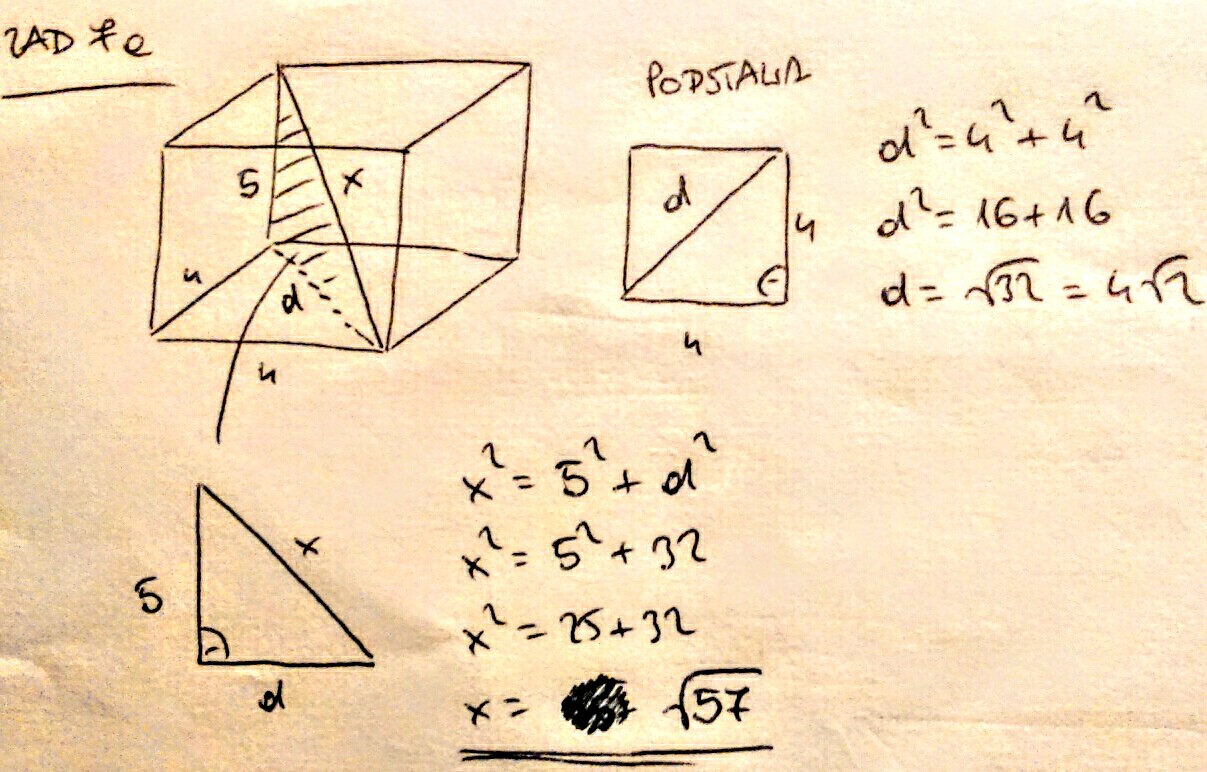 ZAD 7e
PODSTAWA
5
x
4
d
4
d
4
4
d² = 4² + 4²
d² = 16 + 16
d = √32 = 4√2
5
x
d
x² = 5² + d²
x² = 5² + 32
x² = 25 + 32
x = √57